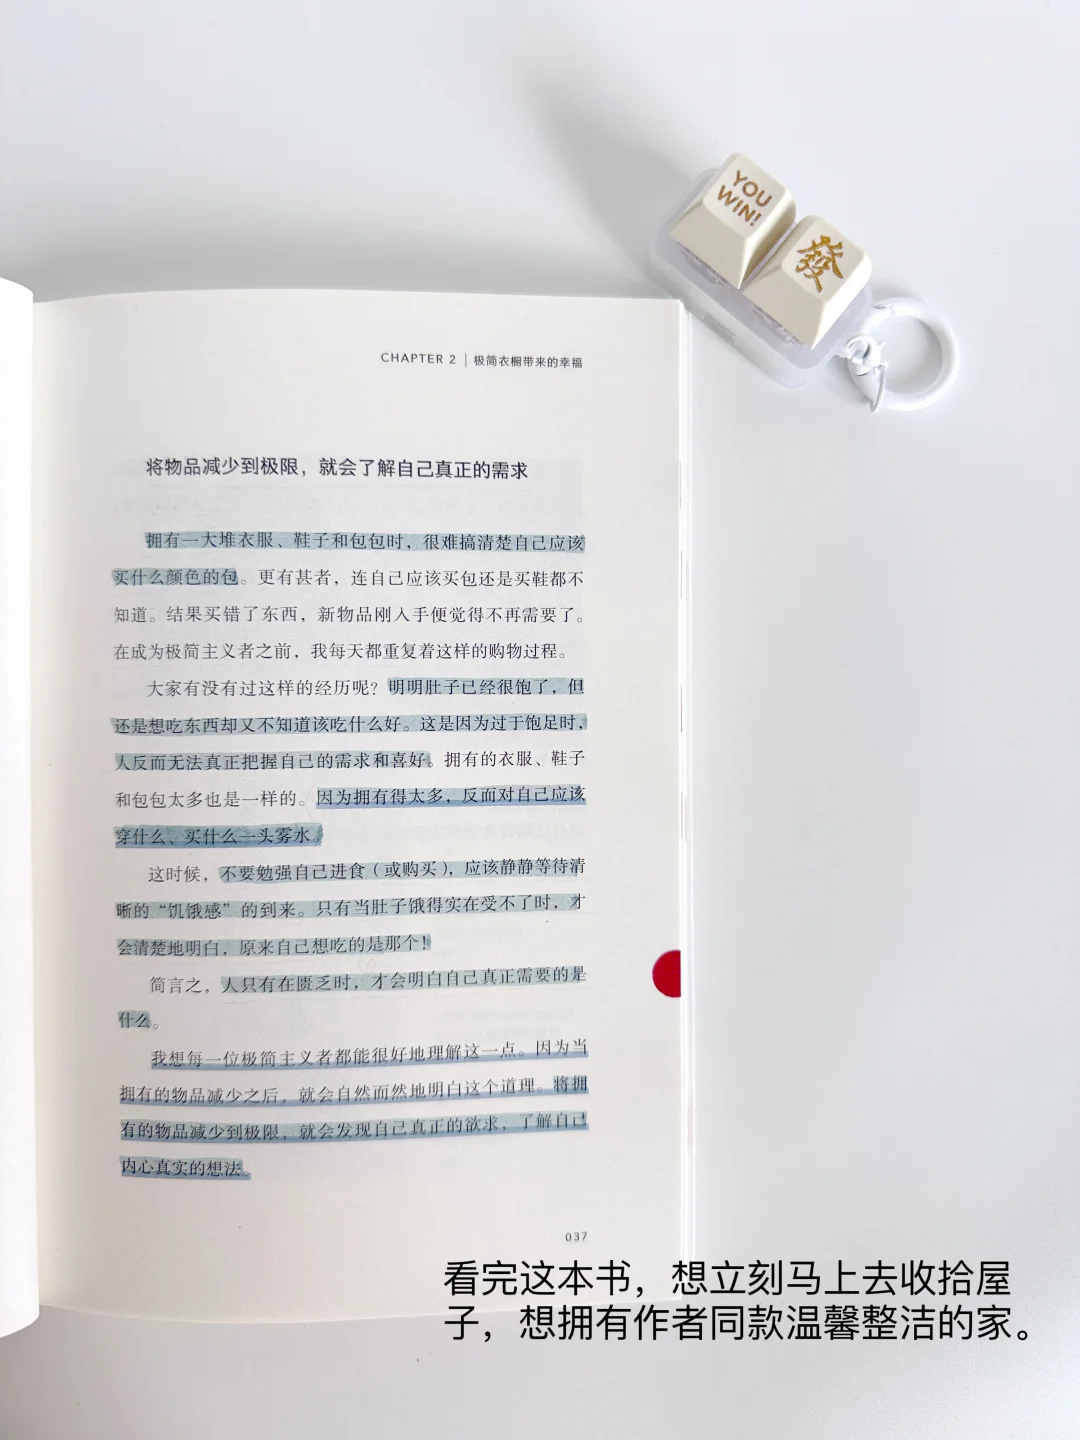 YOU
WIN!
發
CHAPTER 2 | 极简衣橱带来的幸福
将物品减少到极限，就会了解自己真正的需求
拥有一大堆衣服、鞋子和包包时，很难搞清楚自己应该
买什么颜色的包。更有甚者，连自己应该买包还是买鞋都不
知道。结果买错了东西，新物品刚入手便觉得不再需要了。
在成为极简主义者之前，我每天都重复着这样的购物过程。
大家有没有过这样的经历呢？明明肚子已经很饱了，但
还是想吃东西却又不知道该吃什么好。这是因为过于饱足时，
人反而无法真正把握自己的需求和喜好。拥有的衣服、鞋子
和包包太多也是一样的。因为拥有得太多，反而对自己应该
穿什么、买什么一头雾水。
这时候，不要勉强自己进食（或购买），应该静静等待清
晰的“饥饿感”的到来。只有当肚子饿得实在受不了时，才
会清楚地明白，原来自己想吃的是那个！
简言之，人只有在匮乏时，才会明白自己真正需要的是
什么。
我想每一位极简主义者都能很好地理解这一点。因为当
拥有的物品减少之后，就会自然而然地明白这个道理。将拥
有的物品减少到极限，就会发现自己真正的欲求，了解自己
内心真实的想法。
037
看完这本书，想立刻马上去收拾屋
子，想拥有作者同款温馨整洁的家。